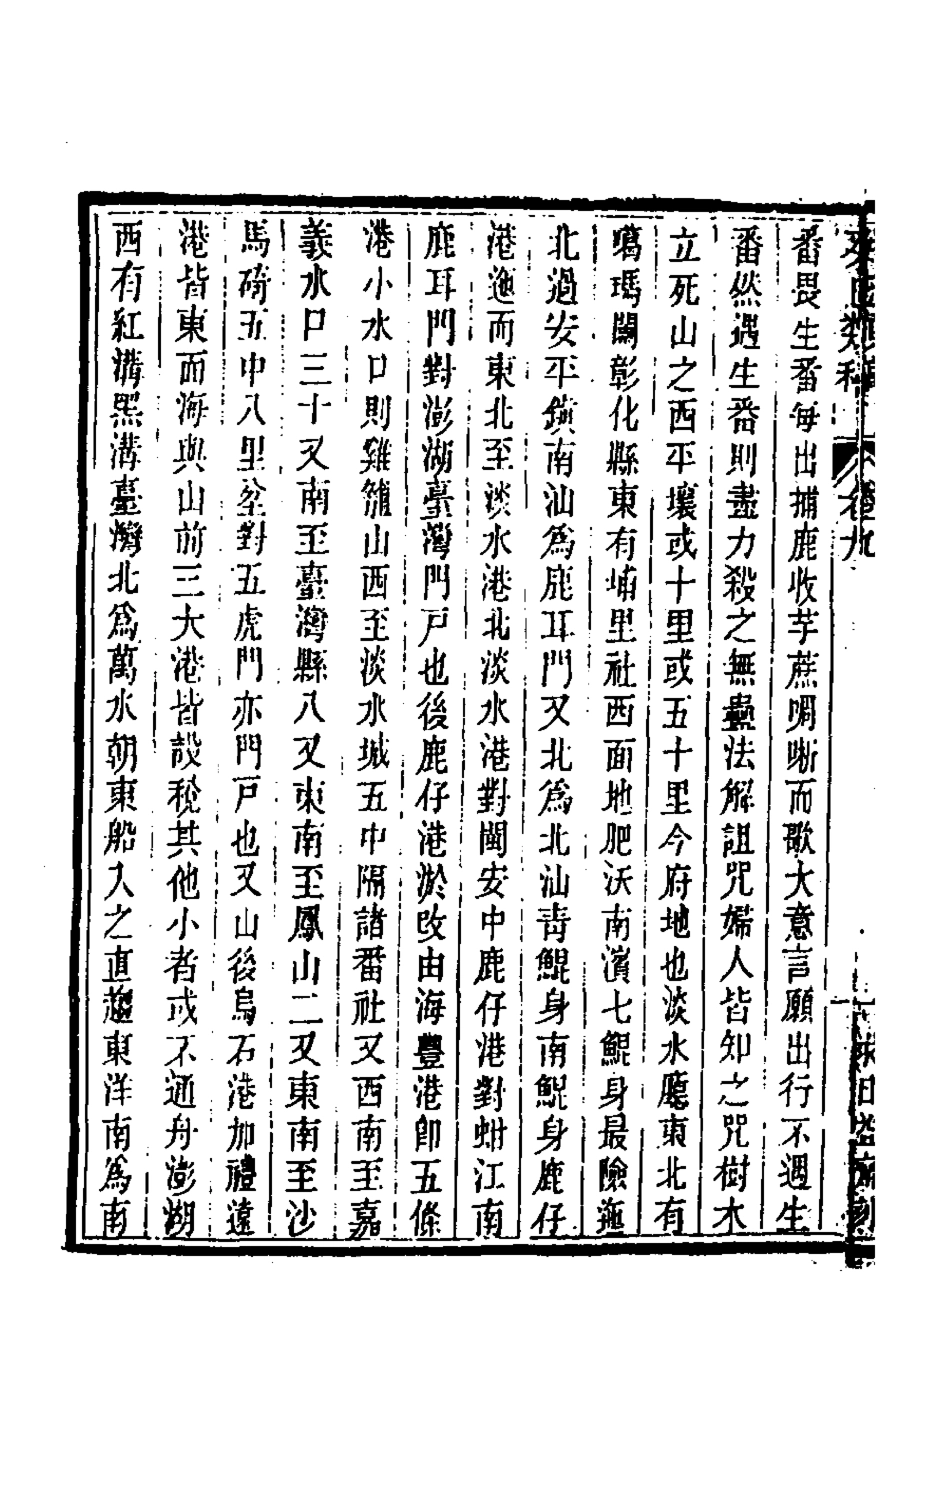 番畏生番每出捕鹿收芋蔗啁哳而歌大意言願出行不遇生
番然遇生番則盡力殺之無蠱法解詛咒婦人皆知之咒樹木
立死山之西平壤或十里或五十里今府地也淡水廳東北有
噶瑪闌彰化縣東有埔里社西面地肥沃南濱七鯤身最險迤
北過安平鎮南汕爲鹿耳門又北爲北汕青鯤身南鯤身鹿仔
港迤而東北至淡水港北淡水港對閩安中鹿仔港對蚶江南
鹿耳門對澎湖臺灣門戸也後鹿仔港淤改由海豐港卽五條
港小水口則雞籠山西至淡水城五中隔諸番社又西南至嘉
義水口三十又南至臺灣縣八又東南至鳳山二又東南至沙
馬碕五中八里坌對五虎門亦門戸也又山後烏石港加禮遠
港皆東面海與山前三大港皆設稅其他小者或不通舟澎湖
西有紅溝黑溝臺灣北爲萬水朝東船入之直趨東洋南爲南